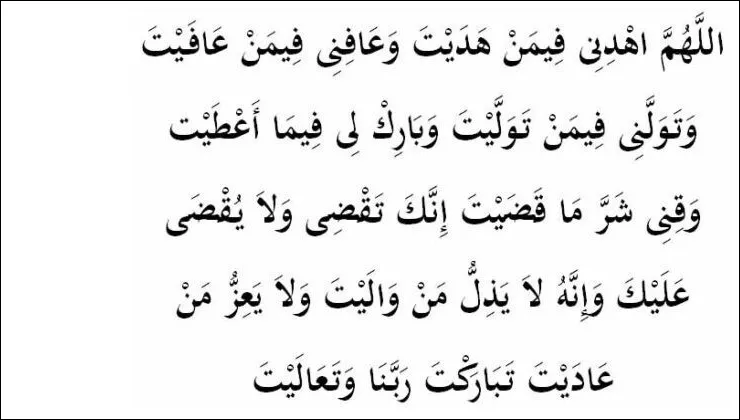 اللَّهُمَّ اهْدِنِى فِيمَنْ هَدَيْتَ وَعَافِنِى فِيمَنْ عَافَيْتَ
وَتَوَلَّنِى فِيمَنْ تَوَلَّيْتَ وَبَارِكْ لِى فِيمَا أَعْطَيْت
وَقِنِى شَرَّ مَا قَضَيْتَ إِنَّكَ تَقْضِى وَلاَ يُقْضَى
عَلَيْكَ وَإِنَّهُ لاَ يَذِلُّ مَنْ وَالَيْتَ وَلاَ يَعِزُّ مَنْ
عَادَيْتَ تَبَارَكْتَ رَبَّنَا وَتَعَالَيْتَ